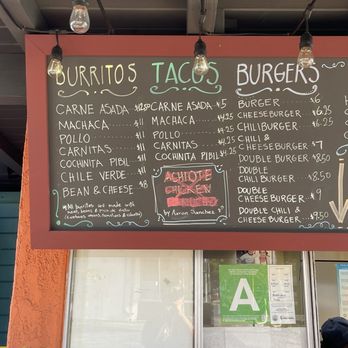 BURRITOS
CARNE ASADA
MACHACA $11
POLLO $11
CARNITAS $11
COCHINITA PIBIL $11
CHILE VERDE $11
BEAN & CHEESE $8
All burritos are made with
TACOS
CARNE ASADA $5
MACHACA $4.25
POLLO $4.25
CARNITAS $4.25
COCHINITA PIBIL $4.25
ACHIOTE
CHICKEN
by Aaron Sanchez
BURGERS
BURGER $6
CHEESEBURGER $6.25
CHILIBURGER $6.25
CHILI &
CHEESEBURGER $7
DOUBLE BURGER $8.50
DOUBLE
CHILIBURGER $8.50
DOUBLE
CHEESEBURGER $9
DOUBLE CHILI &
CHEESEBURGER $9.50
A